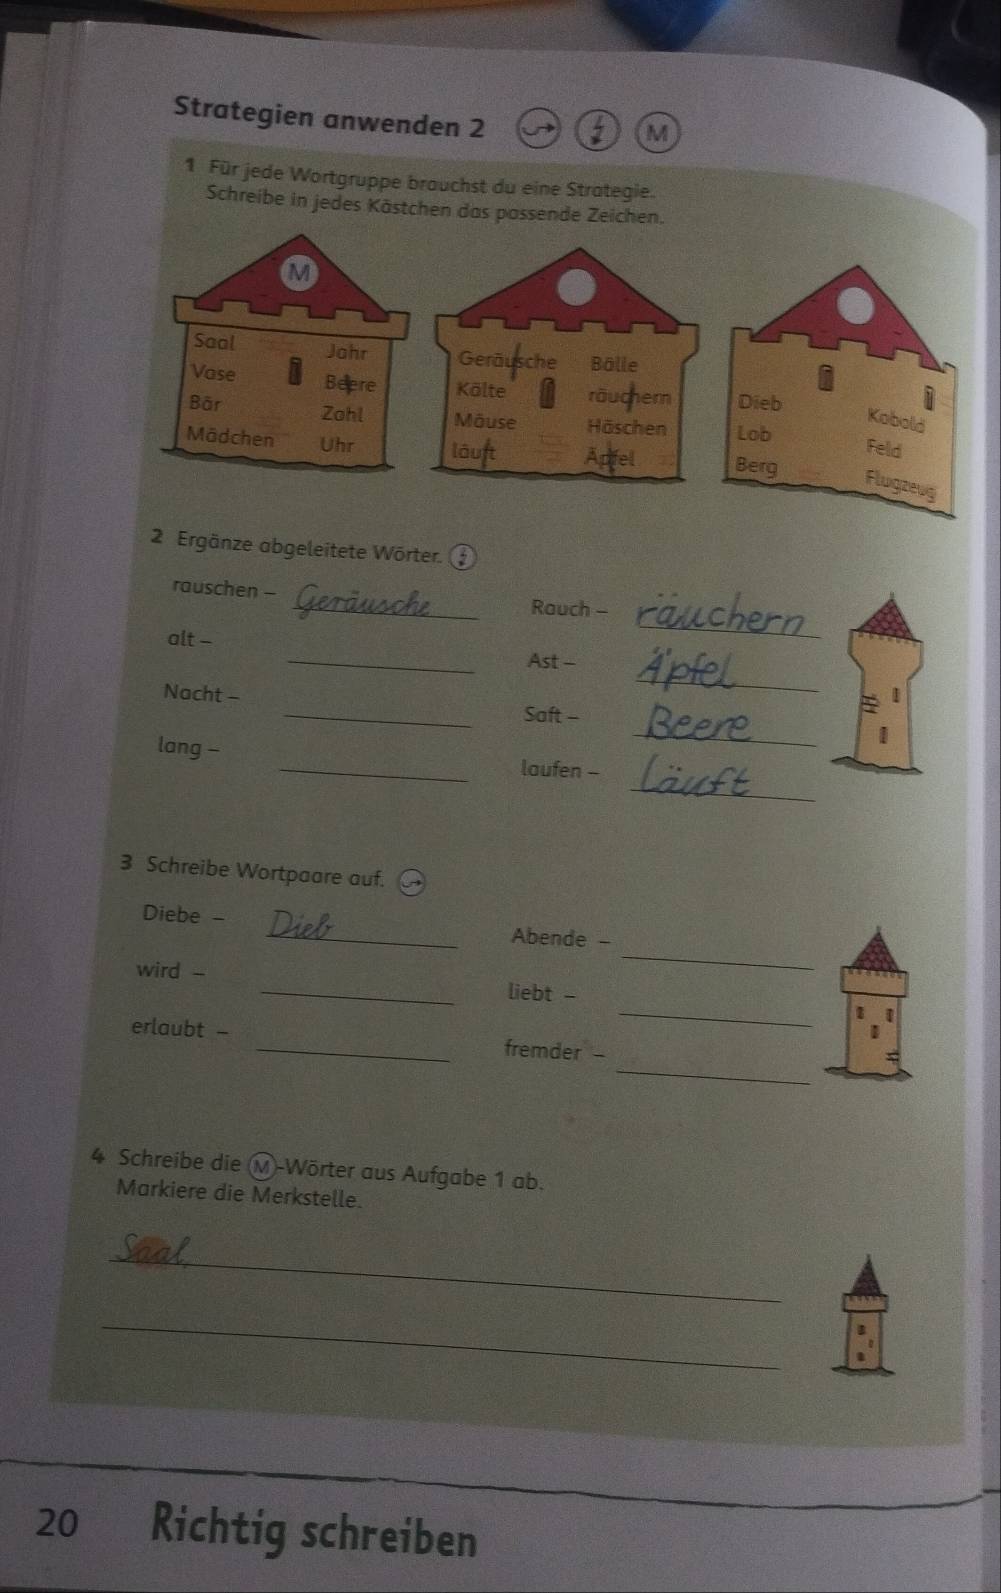 Strategien anwenden 2 M
1 Für jede Wortgruppe brauchst du eine Strategie.
Schreibe in jedes Kästchen das passende Zeichen.
M
Saal Jahr
Vase Beere
Bär Zahl
Mädchen Uhr
Geräusche Bälle
Kälte räuchern
Mäuse Häschen
läuft Äpfel
Dieb Kobold
Lob Feld
Berg Flugzeug
2 Ergänze abgeleitete Wörter.
rauschen – Geräusche Rauch – räuchern
alt – Ast – Äpfel
Nacht – Saft – Beere
lang – laufen – Läuft
3 Schreibe Wortpaare auf.
Diebe – Dieb Abende –
wird – liebt –
erlaubt – fremder –
4 Schreibe die M-Wörter aus Aufgabe 1 ab.
Markiere die Merkstelle.
Saal,
20 Richtig schreiben